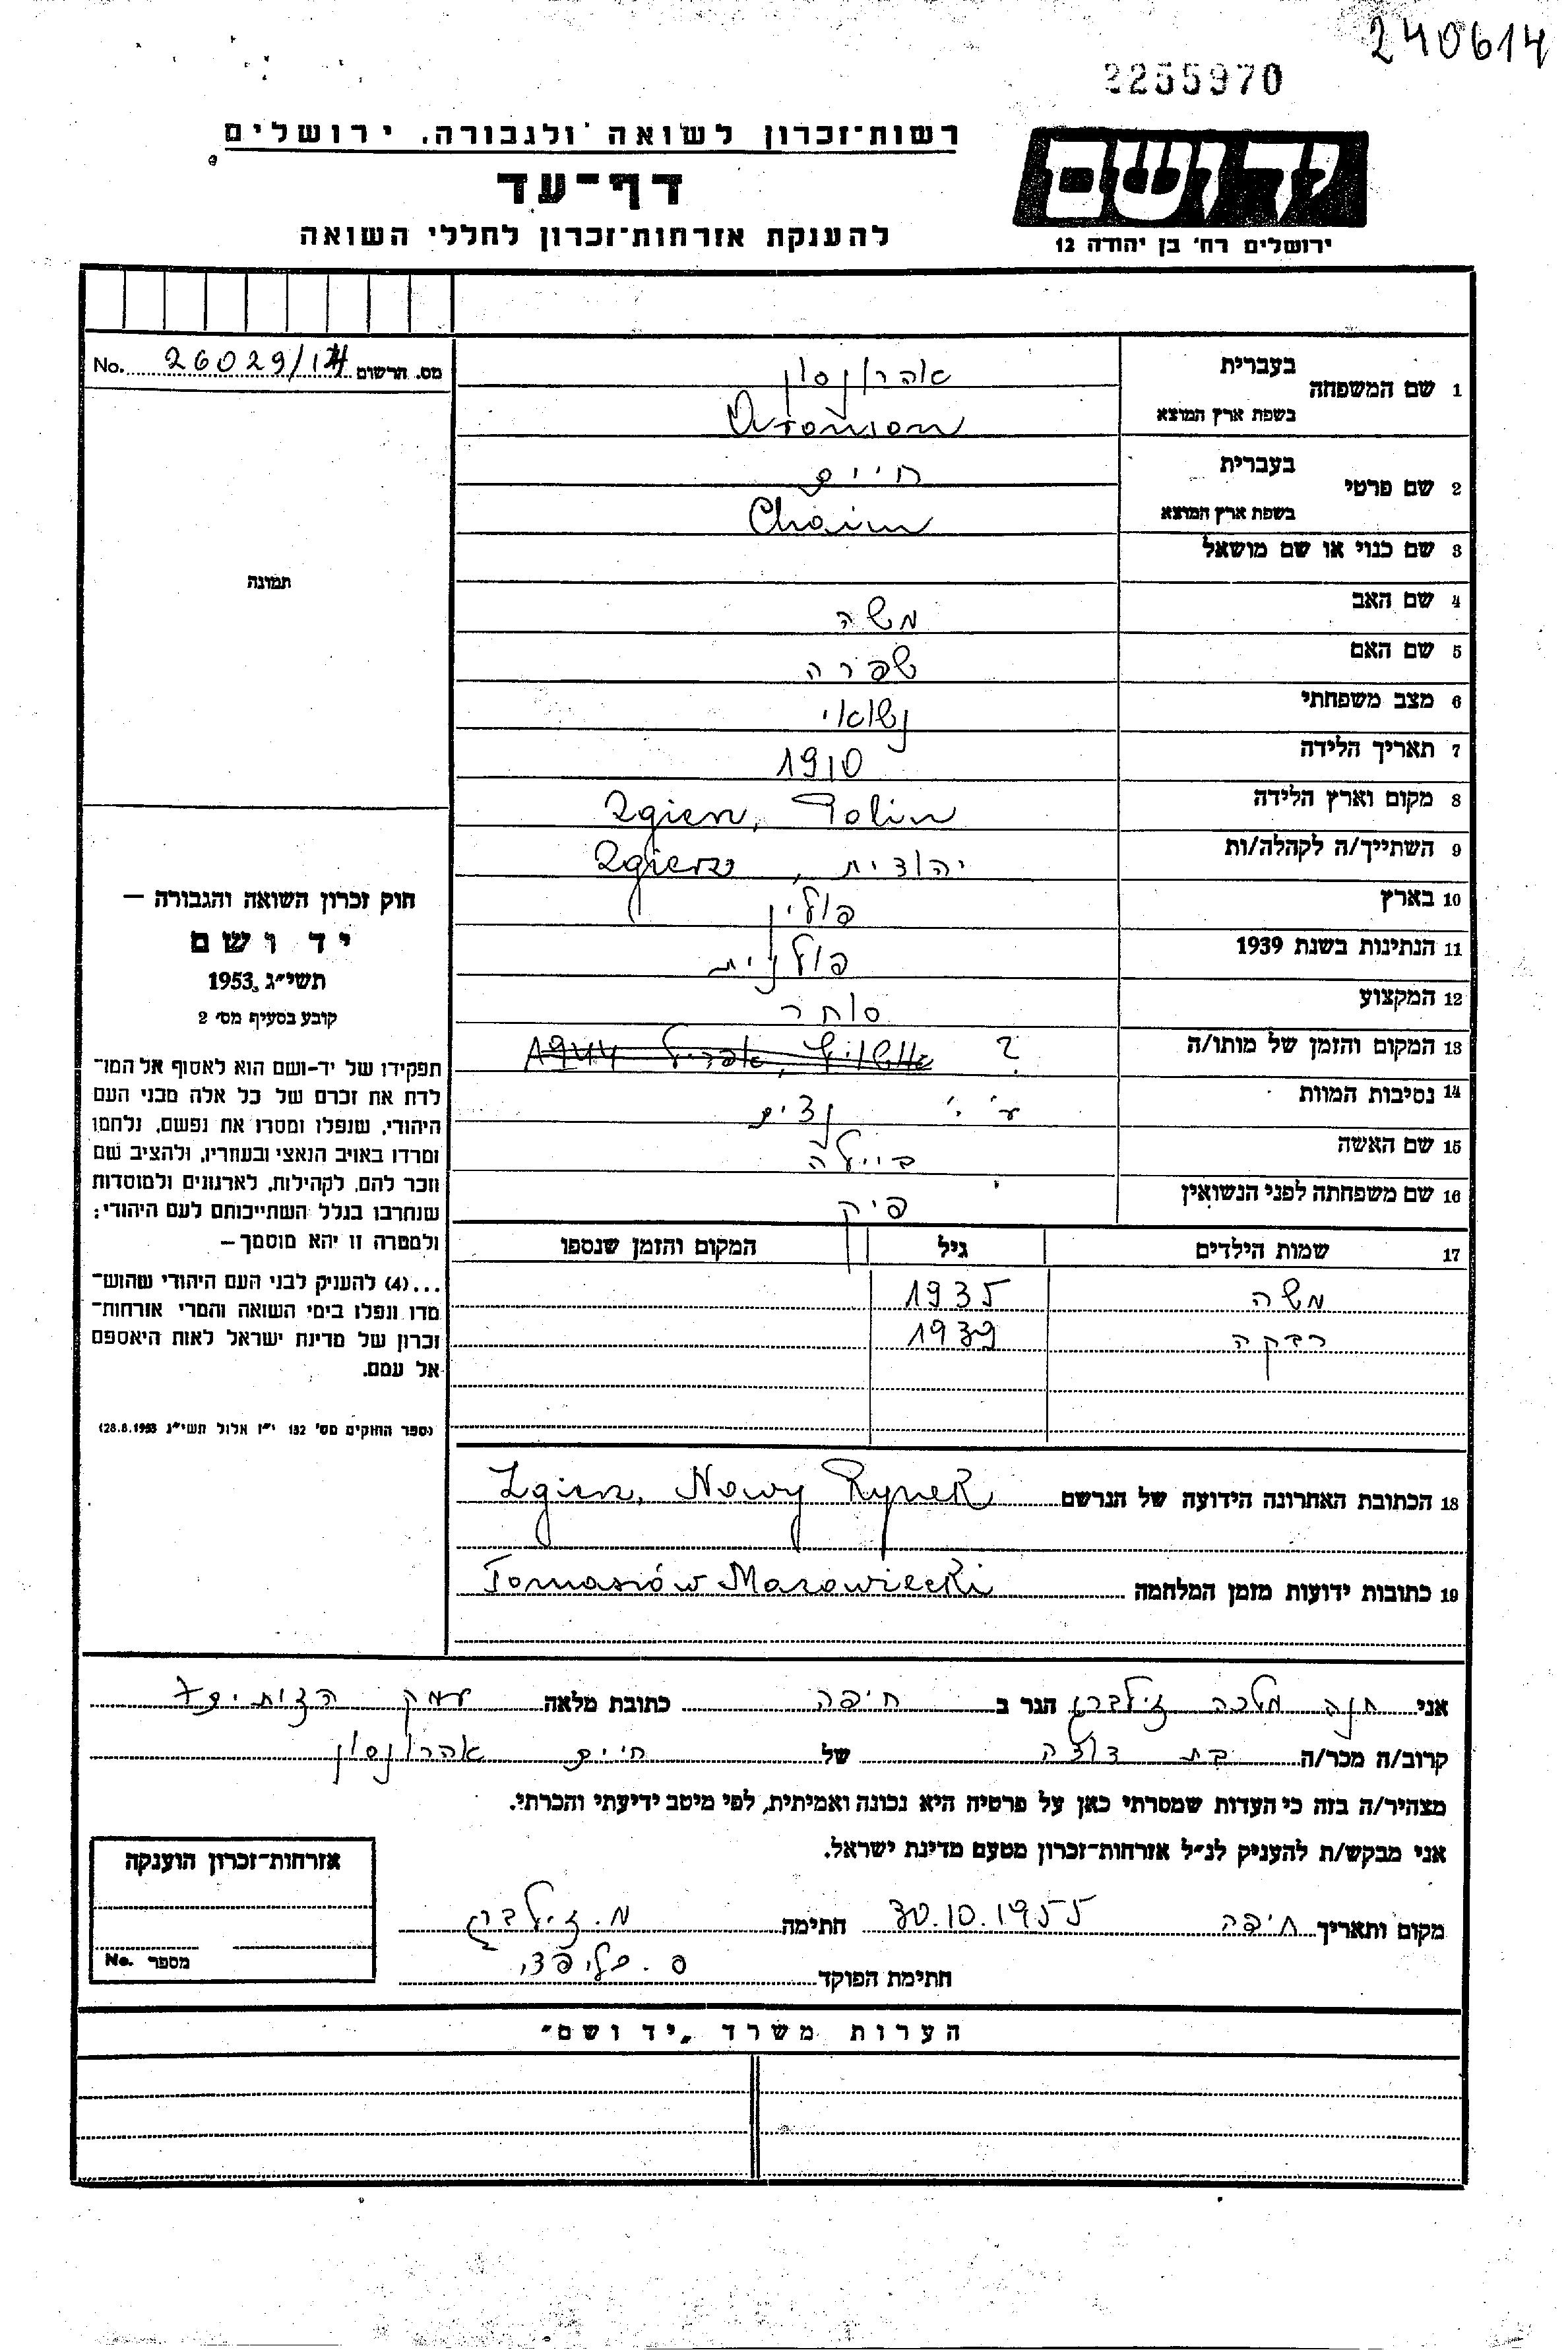 240614
2255970
רשות־זכרון לשואה ולגבורה, ירושלים
דף־עד
להענקת אזרחות־זכרון לחללי השואה
יד ושם
ירושלים רח' בן יהודה 12
מס. הרשום 26029/ No.
תמונה
חוק זכרון השואה והגבורה —
יד ושם
תשי״ג, 1953
קובע בסעיף מס' 2
תפקידו של יד-ושם הוא לאסוף אל המו־
לדת את זכרם של כל אלה מבני העם
היהודי, שנפלו ומסרו את נפשם, נלחמו
ומרדו באויב הנאצי ובעוזריו, ולהציב שם
וזכר להם, לקהילות, לארגונים ולמוסדות
שנחרבו בגלל השתייכותם לעם היהודי;
ולמטרה זו יהא מוסמך —
...(4) להעניק לבני העם היהודי שהוש־
מדו ונפלו בימי השואה והמרי אזרחות־
זכרון של מדינת ישראל לאות היאספם
אל עמם.
(ספר החוקים מס' 132 י״ז אלול תשי״ג 28.8.1953)
1 שם המשפחה בעברית אהרונסון
בשפת ארץ המוצא Aronson
2 שם פרטי בעברית חיים
בשפת ארץ המוצא Chaim
3 שם כנוי או שם מושאל
4 שם האב משה
5 שם האם שפרה
6 מצב משפחתי נשואי
7 תאריך הלידה 1910
8 מקום וארץ הלידה Zgierz, Polin
9 השתייך/ה לקהלה/ות יהודית, Zgierz
10 בארץ פולין
11 הנתינות בשנת 1939 פולנית
12 המקצוע סוחר
13 המקום והזמן של מותו/ה ? אושוויץ, אפריל 1944
14 נסיבות המוות ע' י' נצים
15 שם האשה ביילה
16 שם משפחתה לפני הנשואין פיק
17 שמות הילדים גיל המקום והזמן שנספו
משה 1935
רבקה 1939
18 הכתובת האחרונה הידועה של הנרשם Zgierz, Nowy Rynek
19 כתובות ידועות מזמן המלחמה Tomaszów Mazowiecki
אני חנה מלכה זילברג הגר ב חיפה כתובת מלאה עמק הזתים 7
קרוב/ה מכר/ה בת דודה של חיים אהרונסון
מצהיר/ה בזה כי העדות שמסרתי כאן על פרטיה היא נכונה ואמיתית, לפי מיטב ידיעתי והכרתי.
אני מבקש/ת להעניק לנ״ל אזרחות־זכרון מטעם מדינת ישראל.
מקום ותאריך חיפה 30.10.1955 חתימה מ. זילברג
חתימת הפוקד
אזרחות־זכרון הוענקה
מספר No.
הערות משרד „יד ושם״